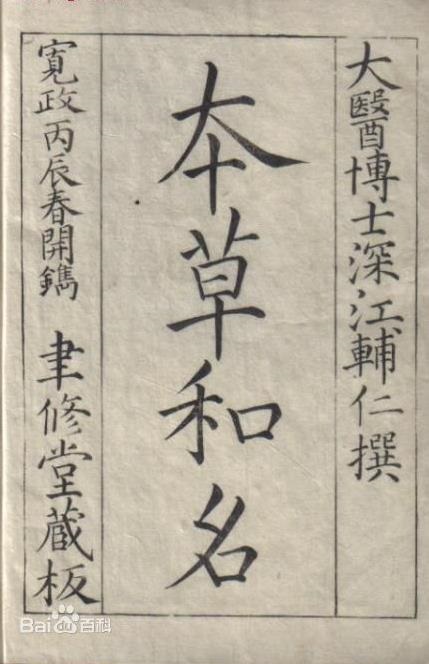 大醫博士深江輔仁撰
本草和名
寛政丙辰春開鐫 聿修堂蔵板
Bai du 百科